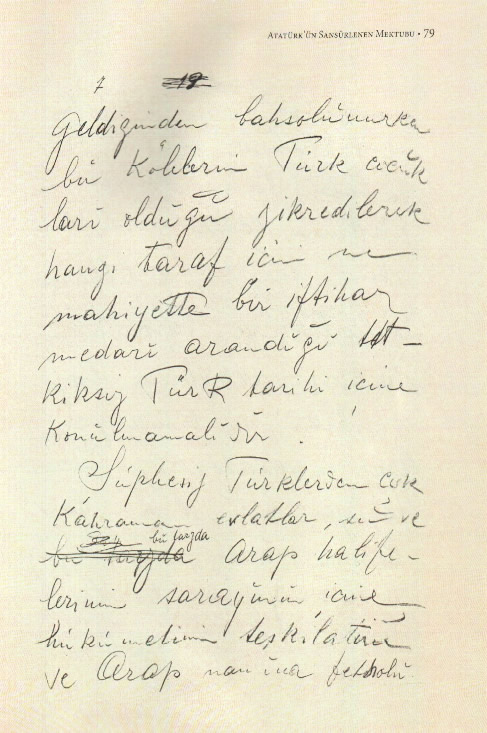 ATATÜRK'ÜN SANSÜRLENEN MEKTUBU • 79
7 12
Geldiğinden bahsolunurken
bu Kölelerin Türk cocuk
ları olduğu zikredilerek
hangi taraf icin ne
mahiyette bir iftihar
medarı arandığı tet-
kiksiz Türk tarihi içine
Konulmamalıdır.
Şüphesiz Türklerden çok
Kahraman evlatlar, ve
bu tarzda
Arap halife-
lerinin sarayının içine
hükümetinin teşkilatına
ve Arap namına